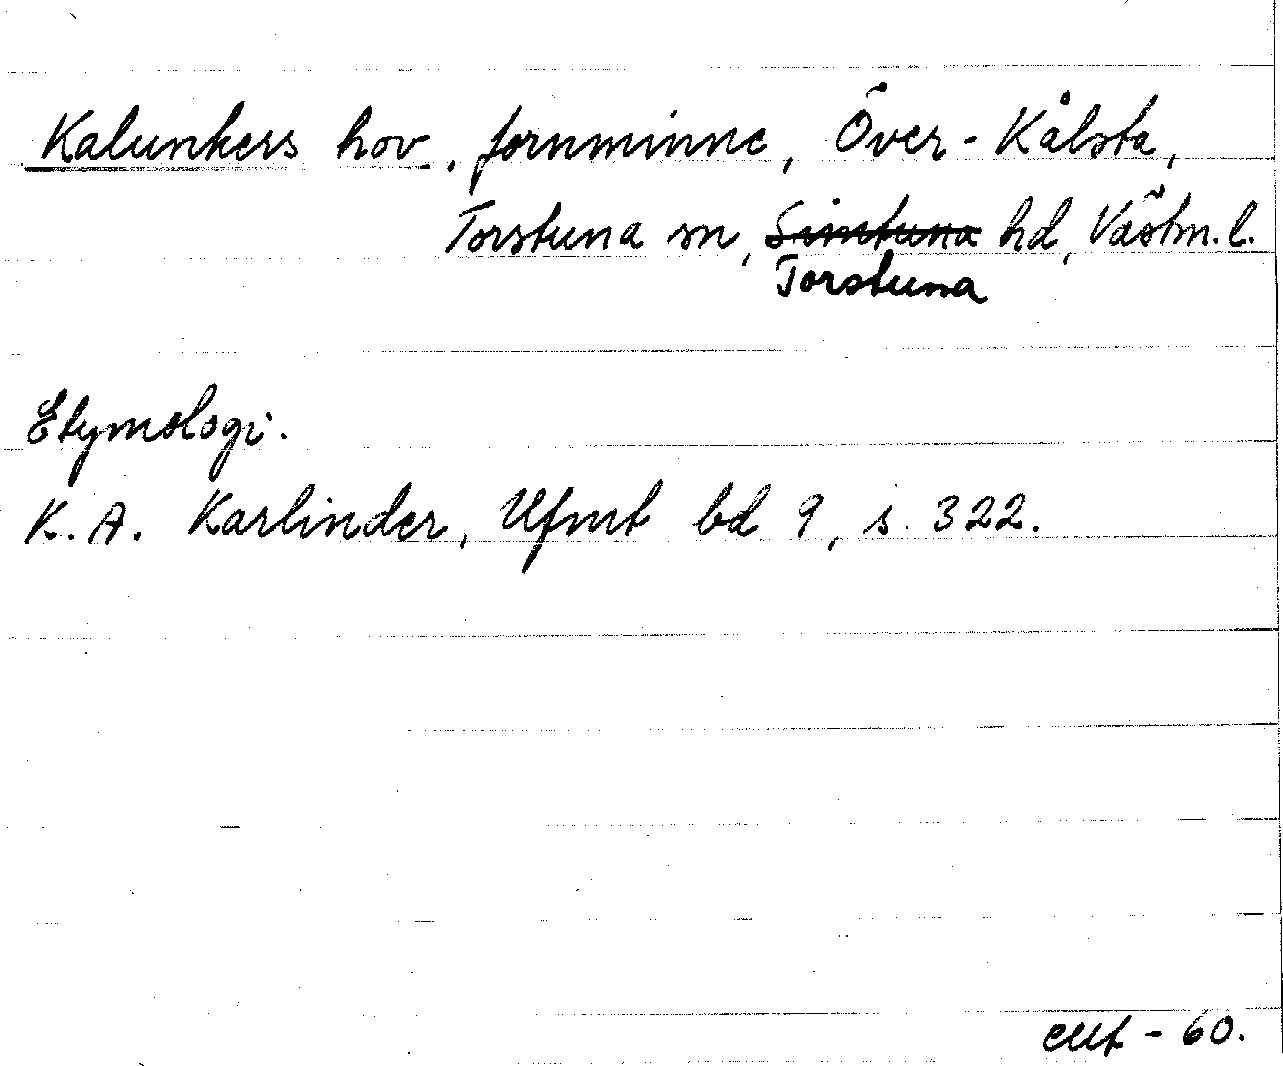 Kalunkers hov, fornminne, Över-Kålsta,
Torstuna sn, Simtuna hd, Västm. l.
Torstuna
Etymologi.
K. A. Karlinder, Ufmt bd 9, s. 322.
- 60.